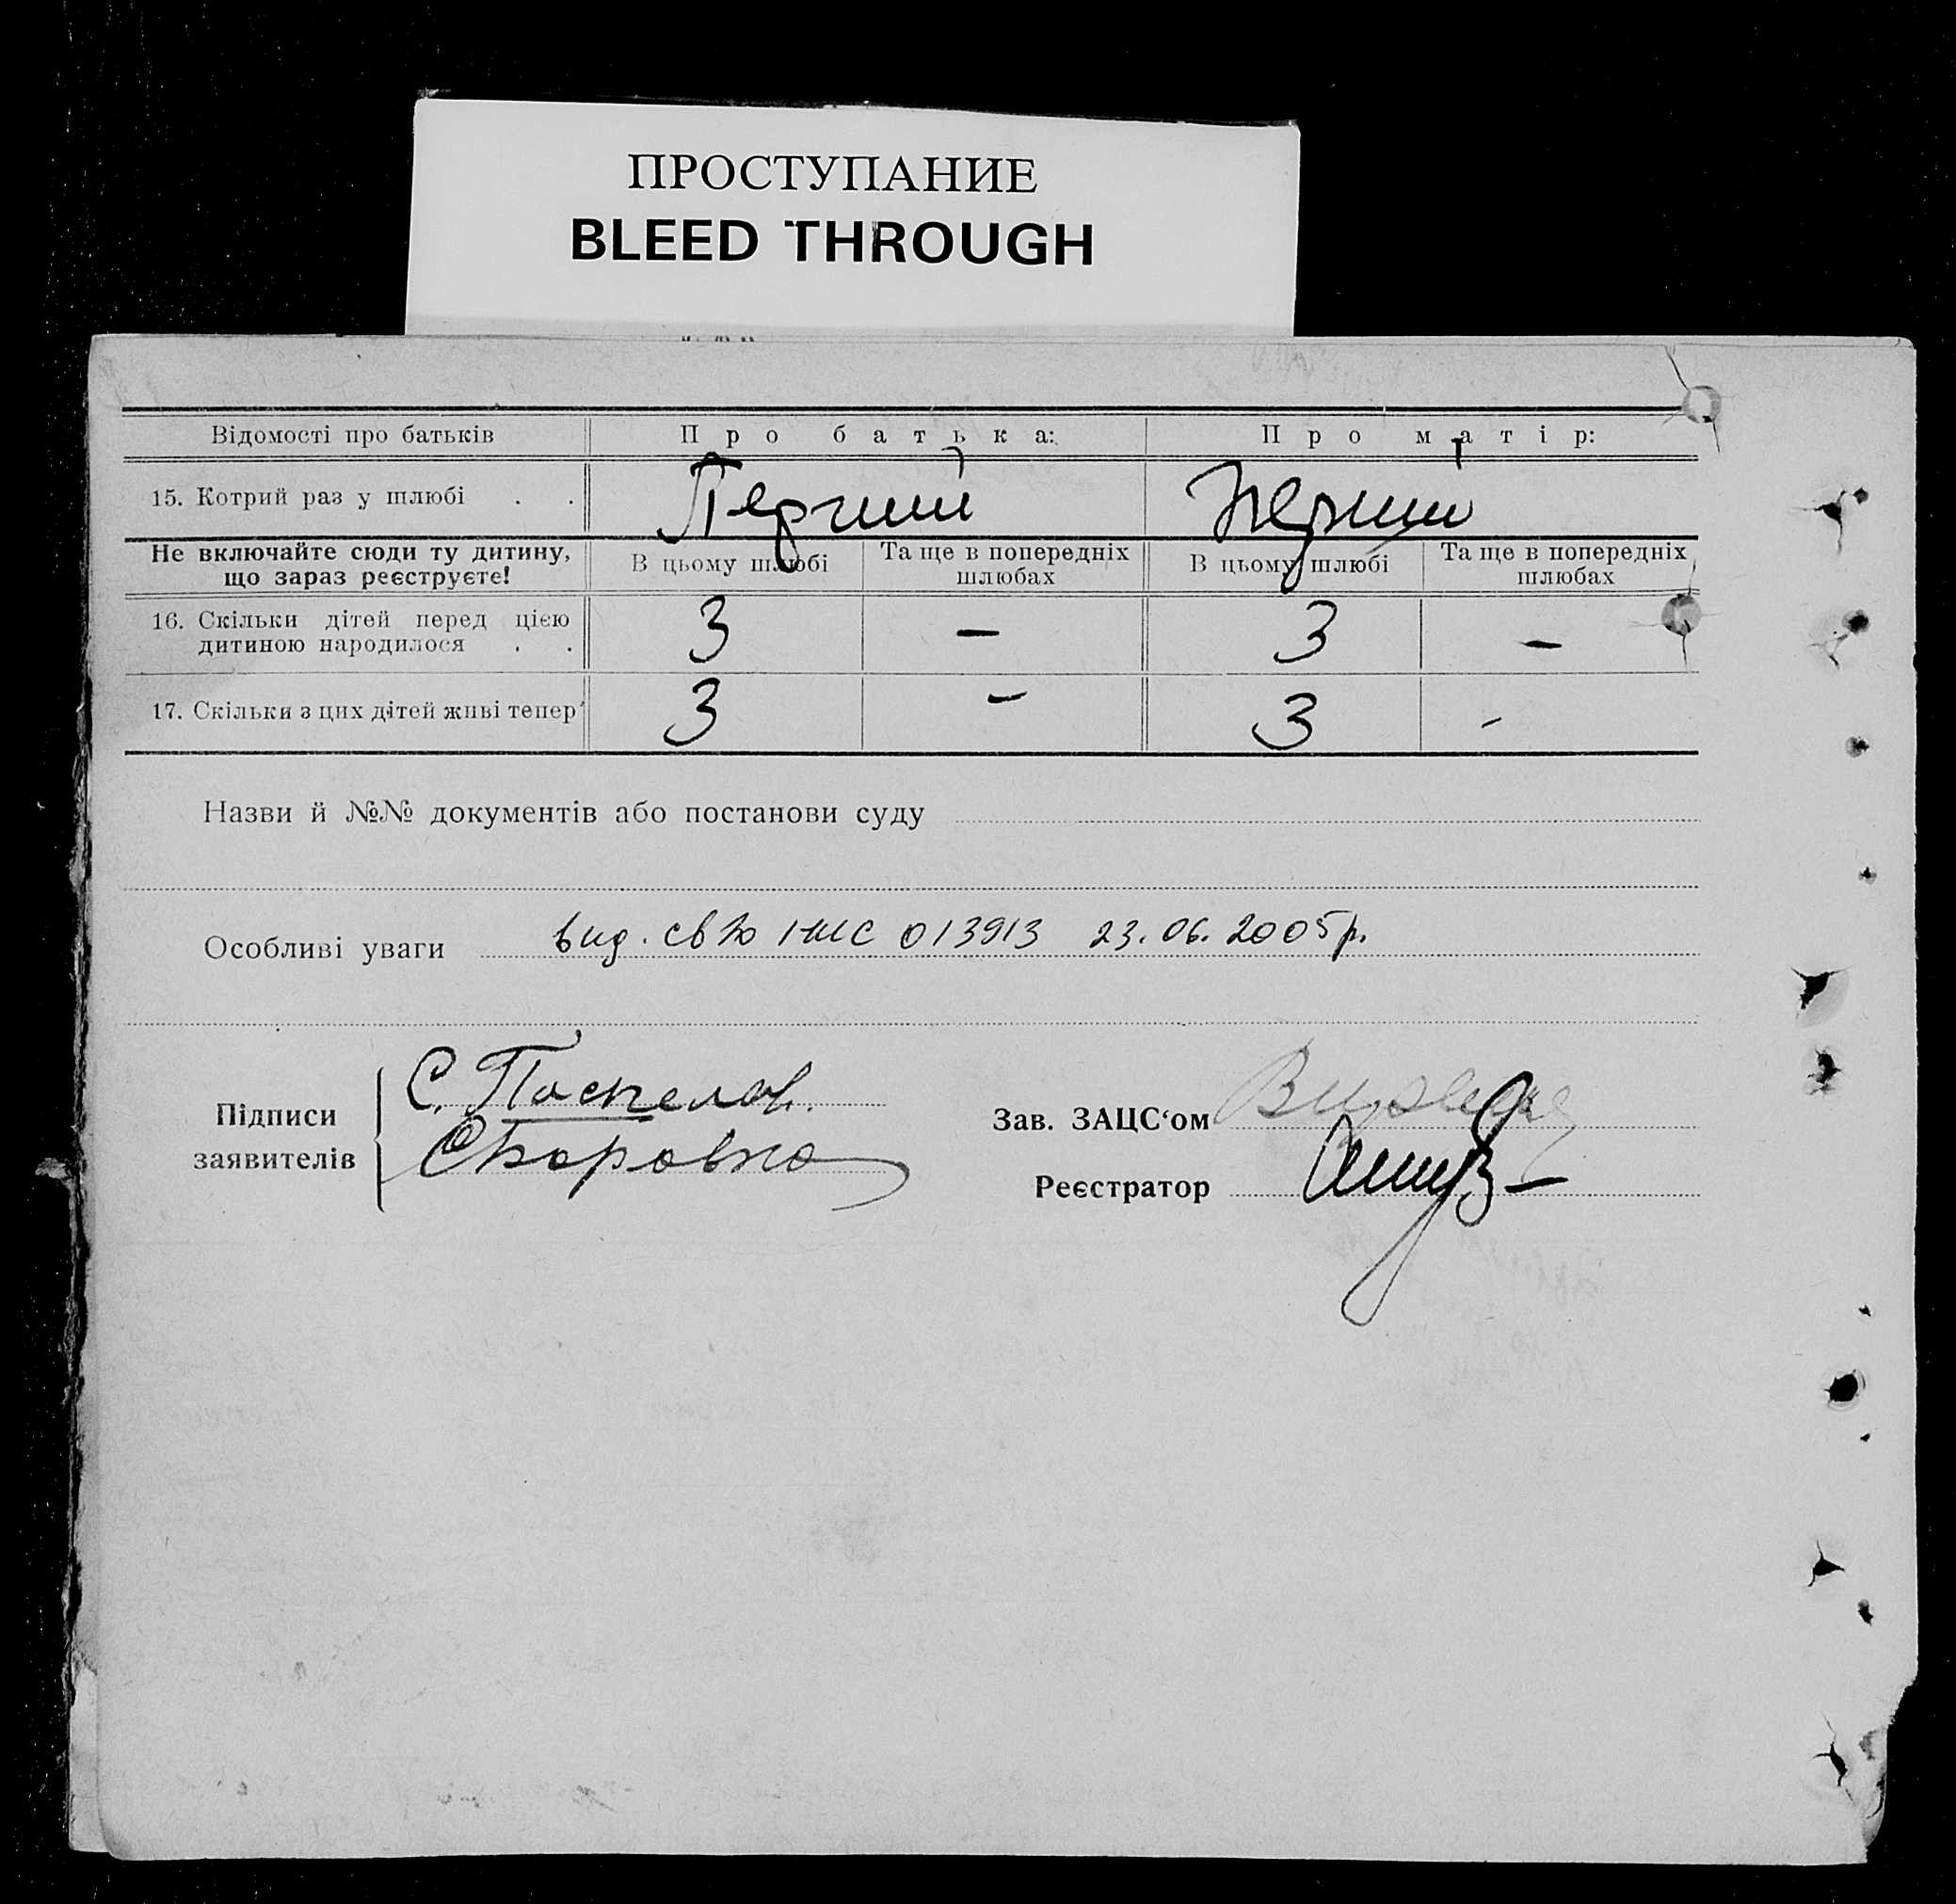 ПРОСТУПАНИЕ
BLEED THROUGH
Відомості про батьків Про батька: Про матір:
15. Котрий раз у шлюбі . . Перший Перший
Не включайте сюди ту дитину, що зараз реєструєте! В цьому шлюбі Та ще в попередніх шлюбах В цьому шлюбі Та ще в попередніх шлюбах
16. Скільки дітей перед цією дитиною народилося . . 3 — 3 —
17. Скільки з цих дітей живі тепер 3 — 3 -
Назви й №№ документів або постанови суду
Особливі уваги вид. св-во 013913 23.06.2005р.
Підписи заявителів С. Поспелов.
Зав. ЗАЦС‘ом
Реєстратор